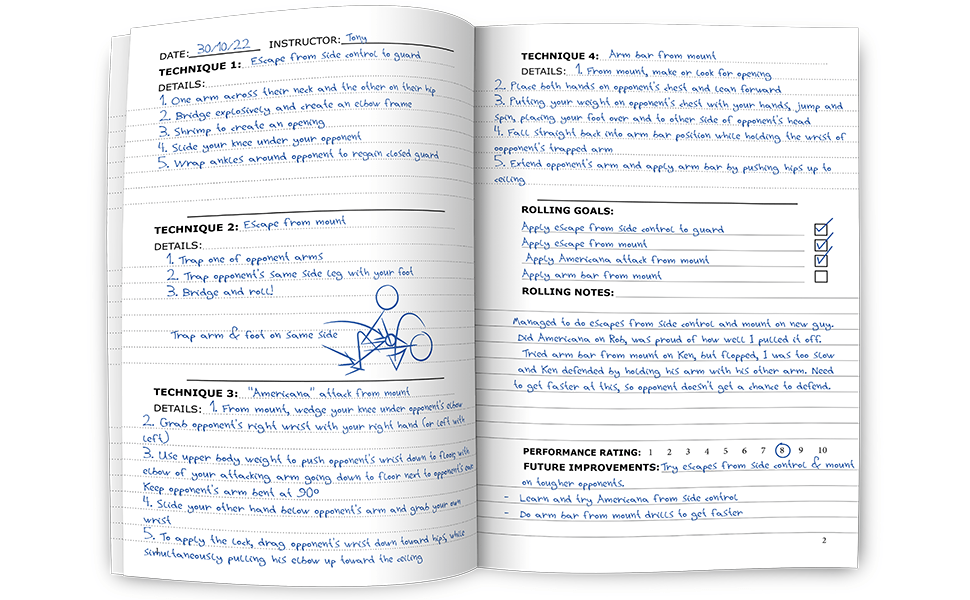 DATE: 30/10/22 INSTRUCTOR: Tony
TECHNIQUE 1: Escape from side control to guard
DETAILS:
1. One arm across their neck and the other on their hip
2. Bridge explosively and create an elbow frame
3. Shrimp to create an opening
4. Slide your knee under your opponent
5. Wrap ankles around opponent to regain closed guard
TECHNIQUE 2: Escape from mount
DETAILS:
1. Trap one of opponent arms
2. Trap opponent's same side leg with your foot
3. Bridge and roll!
Trap arm & foot on same side
TECHNIQUE 3: "Americana" attack from mount
DETAILS: 1. From mount, wedge your knee under opponent's elbow
2. Grab opponent's right wrist with your right hand (or left with
left)
3. Use upper body weight to push opponent's wrist down to floor, with
elbow of your attacking arm going down to floor next to opponent's ear.
Keep opponent's arm bent at 90°
4. Slide your other hand below opponent's arm and grab your own
wrist
5. To apply the lock, drag opponent's wrist down toward hips, while
simultaneously pulling his elbow up toward the ceiling
TECHNIQUE 4: Arm bar from mount
DETAILS: 1. From mount, make or look for opening
2. Place both hands on opponent's chest and lean forward
3. Putting your weight on opponent's chest with your hands, jump and
spin, placing your foot over and to other side of opponent's head
4. Fall straight back into arm bar position while holding the wrist of
oopponent's trapped arm
5. Extend opponent's arm and apply arm bar by pushing hips up to
ceiling
ROLLING GOALS:
Apply escape from side control to guard
Apply escape from mount
Apply Americana attack from mount
Apply arm bar from mount
ROLLING NOTES:
Managed to do escapes from side control and mount on new guy.
Did Americana on Rob, was proud of how well I pulled it off.
Tried arm bar from mount on Ken, but flopped, I was too slow
and Ken defended by holding his arm with his other arm. Need
to get faster at this, so opponent doesn't get a chance to defend.
PERFORMANCE RATING: 1 2 3 4 5 6 7 8 9 10
FUTURE IMPROVEMENTS: Try escapes from side control & mount
on tougher opponents.
- Learn and try Americana from side control
- Do arm bar from mount drills to get faster
2